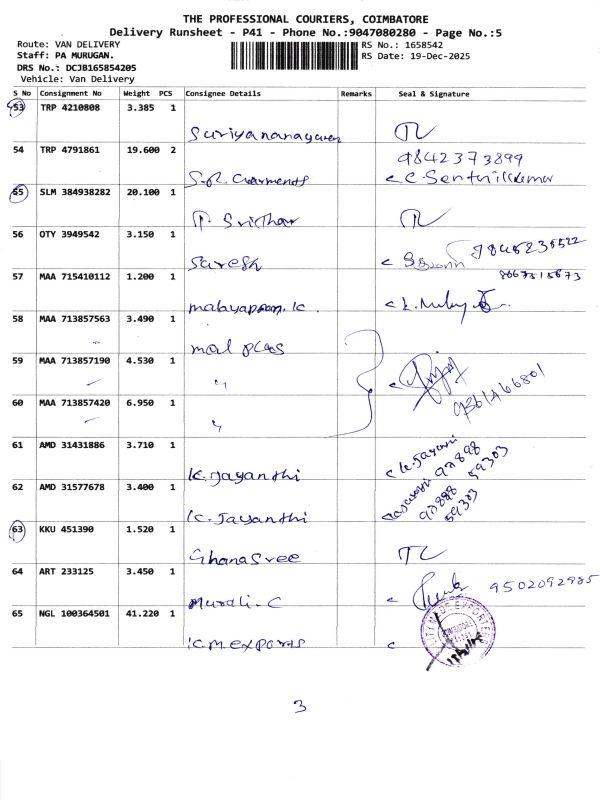 THE PROFESSIONAL COURIERS, COIMBATORE
Delivery Runsheet - P41 - Phone No.:9047080280 - Page No.:5
Route: VAN DELIVERY
Staff: PA MURUGAN.
DRS No.: DCJB165854205
Vehicle: Van Delivery
RS No.: 1658542
RS Date: 19-Dec-2025
S No Consignment No Weight PCS Consignee Details Remarks Seal & Signature
53 TRP 4210808 3.385 1
54 TRP 4791861 19.600 2
9842373899
S.R. Garments
c C. Senthilkumar
55 SLM 384938282 20.100 1
P. Sridhar
56 OTY 3949542 3.150 1
Suresh
57 MAA 715410112 1.200 1
58 MAA 713857563 3.490 1
59 MAA 713857190 4.530 1
60 MAA 713857420 6.950 1
9361466801
61 AMD 31431886 3.710 1
K. Jayanthi
62 AMD 31577678 3.400 1
K. Jayanthi
97898
59303
63 KKU 451390 1.520 1
Ghanasree
64 ART 233125 3.450 1
Murali-C
9502092985
65 NGL 100364501 41.220 1
K.M. exports
3